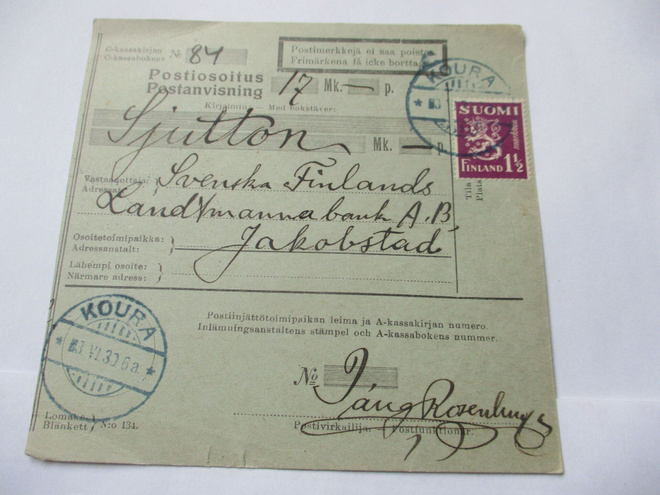 O-kassakirjan
O-kassabokens № 84
Postimerkkejä ei saa poistaa
Frimärkena få icke borttag
Postiosoitus
Postanvisning 17 Mk. — p.
Kirjaimin — Med bokstäver:
Sjutton Mk. — p.
KOURA
SUOMI
FINLAND 1½
Tila
Plats
Vastaanottaja:
Adressat: Svenska Finlands
Landtmannabank A.B.
Osoitetoimipaikka:
Adressanstalt: Jakobstad
Lähempi osoite:
Närmare adress:
KOURA
VI.30 6a.
Postiinjättötoimipaikan leima ja A-kassakirjan numero.
Inlämningsanstaltens stämpel och A-kassabokens nummer.
№
Rosenlund
Postivirkailija. Postfunktionär.
Lomake
Blankett N:o 134.